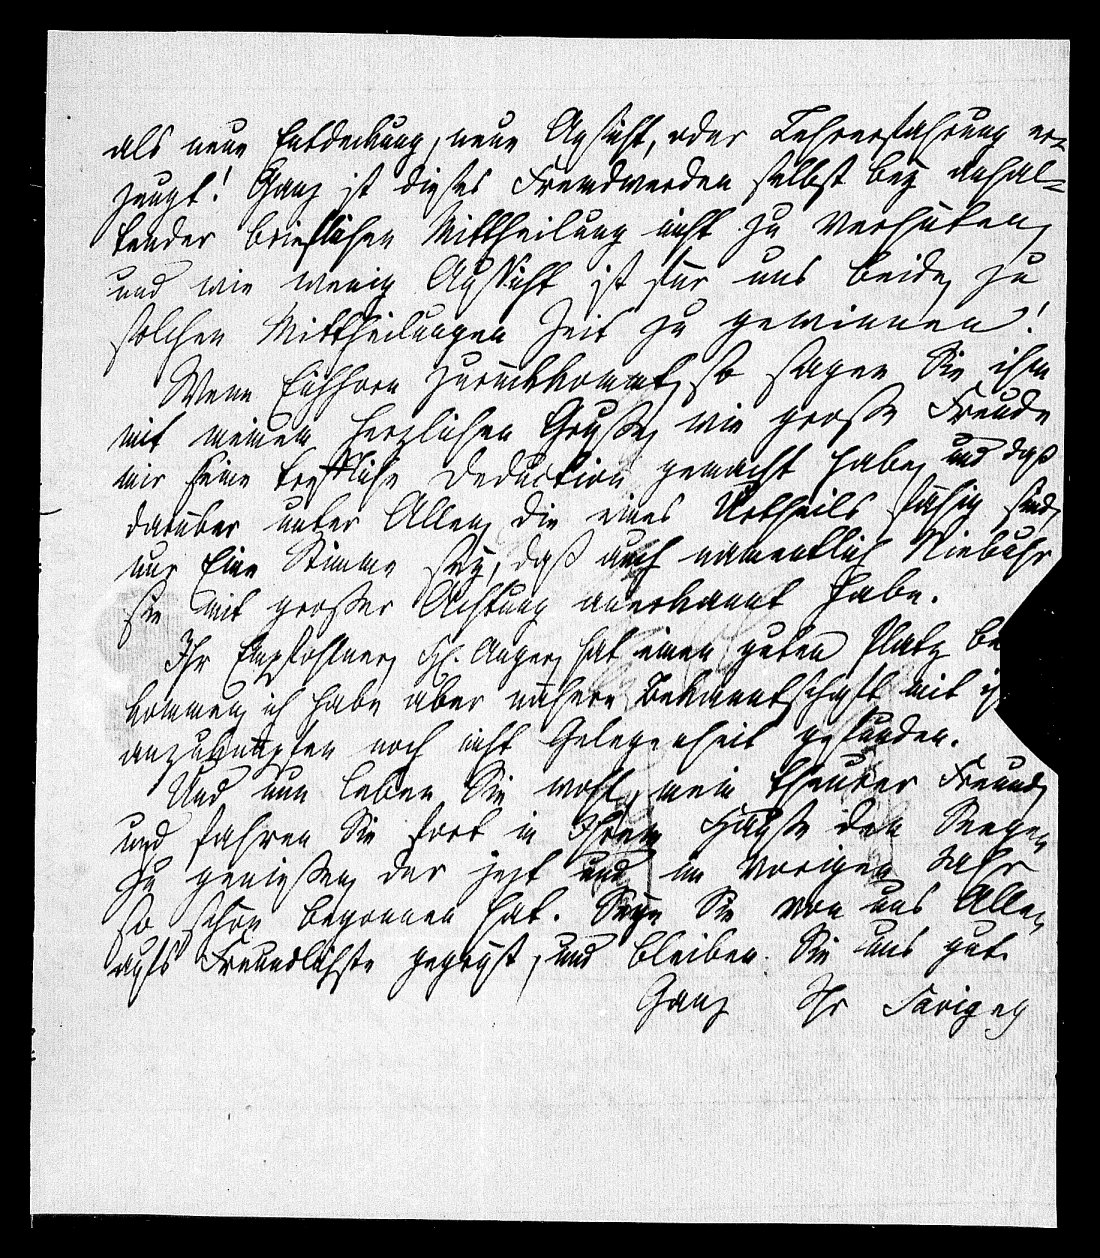 als neue Entdeckung, neue Ansicht, oder Lehrerfahrung er-
zeugt! Ganz ist dieses Fremdwerden selbst bey anhal-
tender brieflichen Mittheilung nicht zu verhüten,
und wie wenig Aussicht ist für uns beide, zu
solchen Mittheilungen Zeit zu gewinnen!
Wenn Eichhorn zurückkommt, so sagen Sie ihm
mit meinem herzlichen Gruße, wie große Freude
mir seine treffliche Deduction gemacht habe, und daß
darüber unter Allen, die eines Urtheils fähig sind,
nur Eine Stimme sey, daß auch namentlich Niebuhr
sie mit großer Achtung anerkannt habe.
Ihr Empfohlner, H. Unger, hat einen guten Platz be
kommen, ich habe aber nähere Bekanntschaft mit ih
anzuknüpfen noch nicht Gelegenheit gefunden.
Und nun leben Sie wohl, mein theurer Freund,
und fahren Sie fort in Ihrem Hause den Seegen
zu genießen, der jezt und im vorigen Jahr
so schön begonnen hat. Seyn Sie von uns Allen
aufs Freundlichste gegrüßt, und bleiben Sie uns gut.
Ganz Ihr Savigny